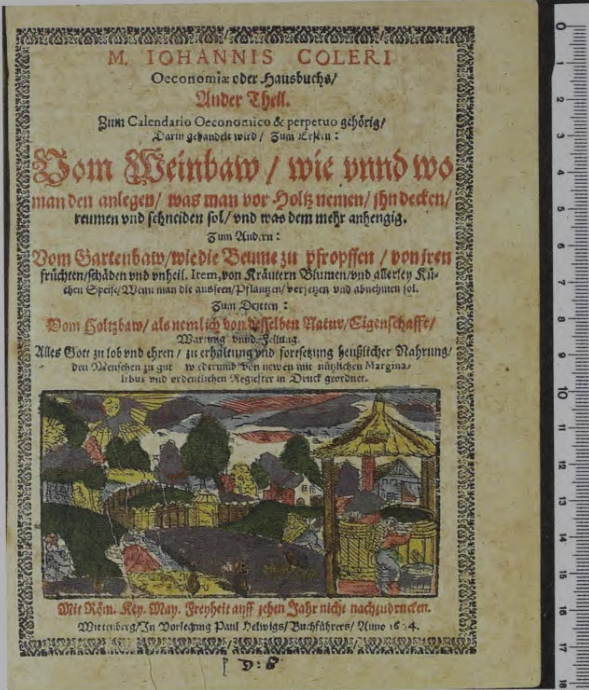 M. IOHANNIS COLERI
Oeconomiæ oder Hausbuchs/
Ander Theil.
Zum Calendario Oeconomico & perpetuo gehörig/
Darin gehandelt wird / Zum Ersten:
Vom Weinbaw / wie vnnd wo
man den anlegen/ was man vor Holtz nemen/ jhn decken/
reumen vnd schneiden sol/ vnd was dem mehr anhengig.
Zum Andern:
Vom Gartenbaw/ wie die Beume zu pfropffen / von jren
früchten/ schäden vnd vnheil. Item, von Kräutern Blumen/ vnd allerley Kü-
chen Speise/ Wenn man die ausseen/ Pflantzen/ versetzen vnd abnehmen sol.
Zum Dritten:
Vom Holtzbaw/ als nemlich von desselben Natur/ Eigenschafft/
Wartung vnnd Fellung.
Alles Gott zu lob vnd ehren/ zu erhaltung vnd fortsetzung heußlicher Nahrung/
den Menschen zu gut wederumb von newen mit nützlichen Margina-
libus vnd ordentlichen Register in Druck geordnet.
Mit Röm. Key. May. Freyheit auff zehen Jahr nicht nachzudrucken.
Wittenberg/ In Vorlegung Paul Helwigs/ Buchführers/ Anno
0
1
2
3
4
5
6
7
8
9
10
11
12
13
14
15
16
17
18